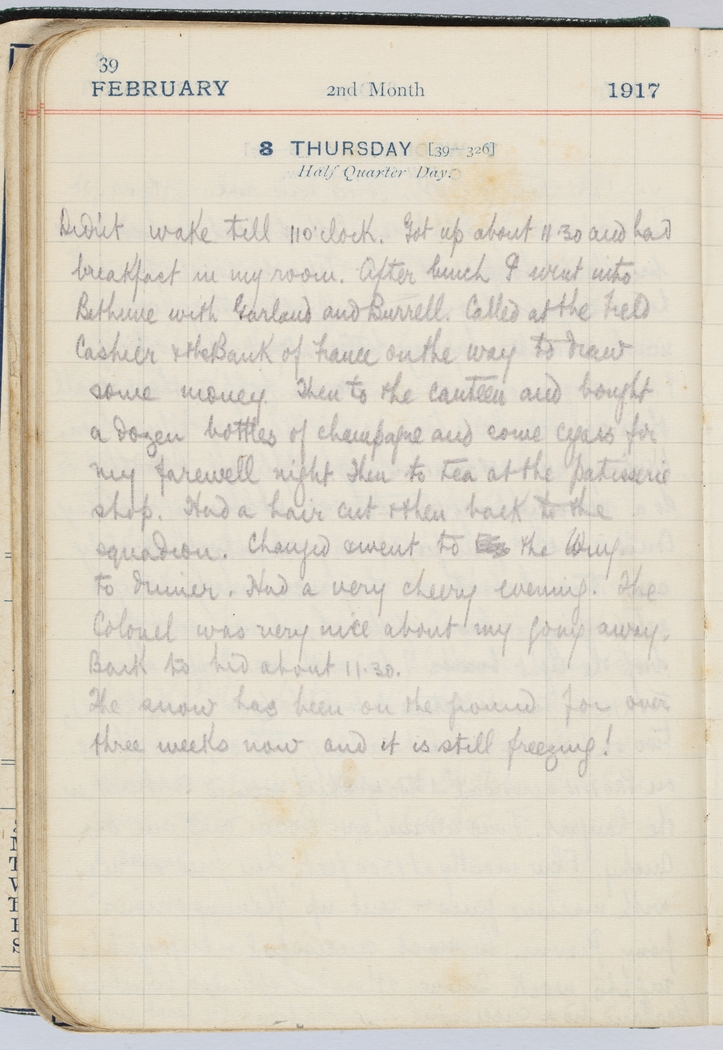 39
FEBRUARY 2nd Month 1917
8 THURSDAY [39-326]
Half Quarter Day.
Didn't wake till 11 o'clock. Got up about 11 30 and had
breakfast in my room. After lunch I went into
Bethune with Garland and Burrell. Called at the Field
Cashier & the Bank of France on the way to draw
some money. Then to the canteen and bought
a dozen bottles of champagne and some cigars for
my farewell night Then to tea at the patisserie
shop. Had a hair cut & then back to the
squadron. Changed & went to the Wing
to dinner. Had a very cheery evening. The
Colonel was very nice about my going away.
Back to bed about 11.30.
The snow has been on the ground for over
three weeks now and it is still freezing!